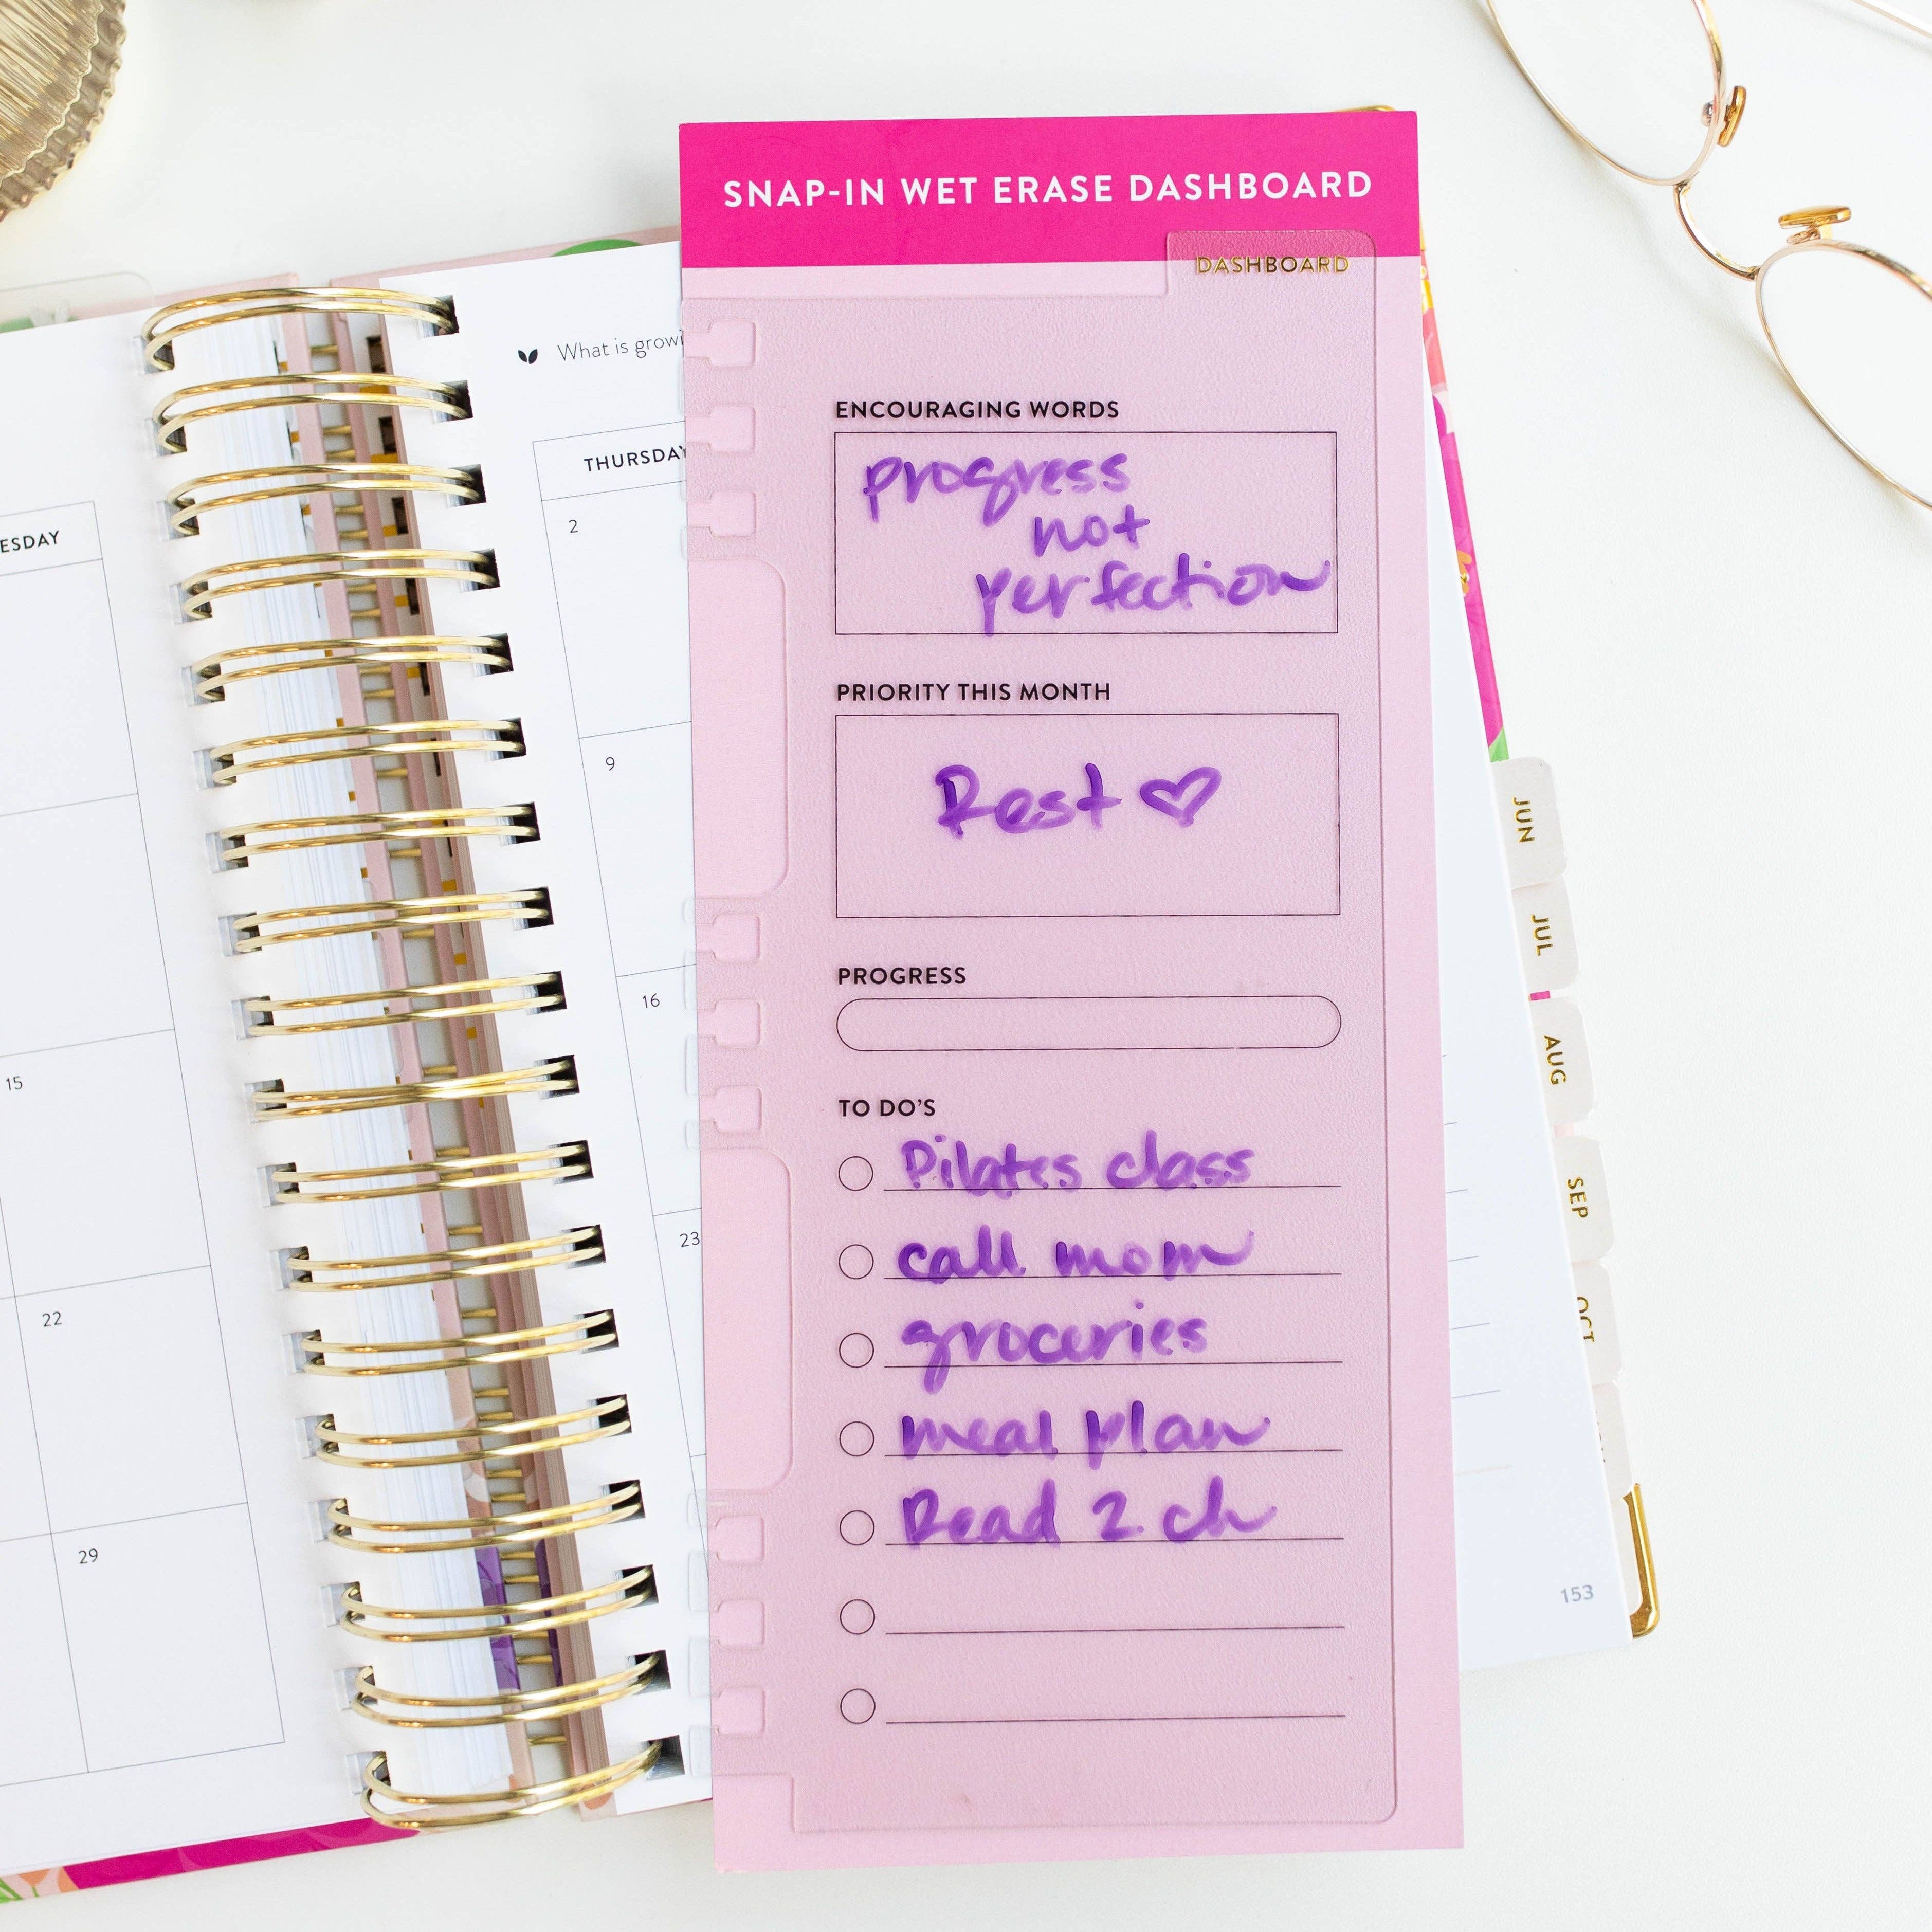 SNAP-IN WET ERASE DASHBOARD
DASHBOARD
ENCOURAGING WORDS
progress
not
perfection
PRIORITY THIS MONTH
Rest ♡
PROGRESS
TO DO'S
Pilates class
call mom
groceries
meal plan
Read 2 ch
What is
THURSDAY
2
9
16
23
15
22
29
JUN
JUL
AUG
SEP
OCT
153